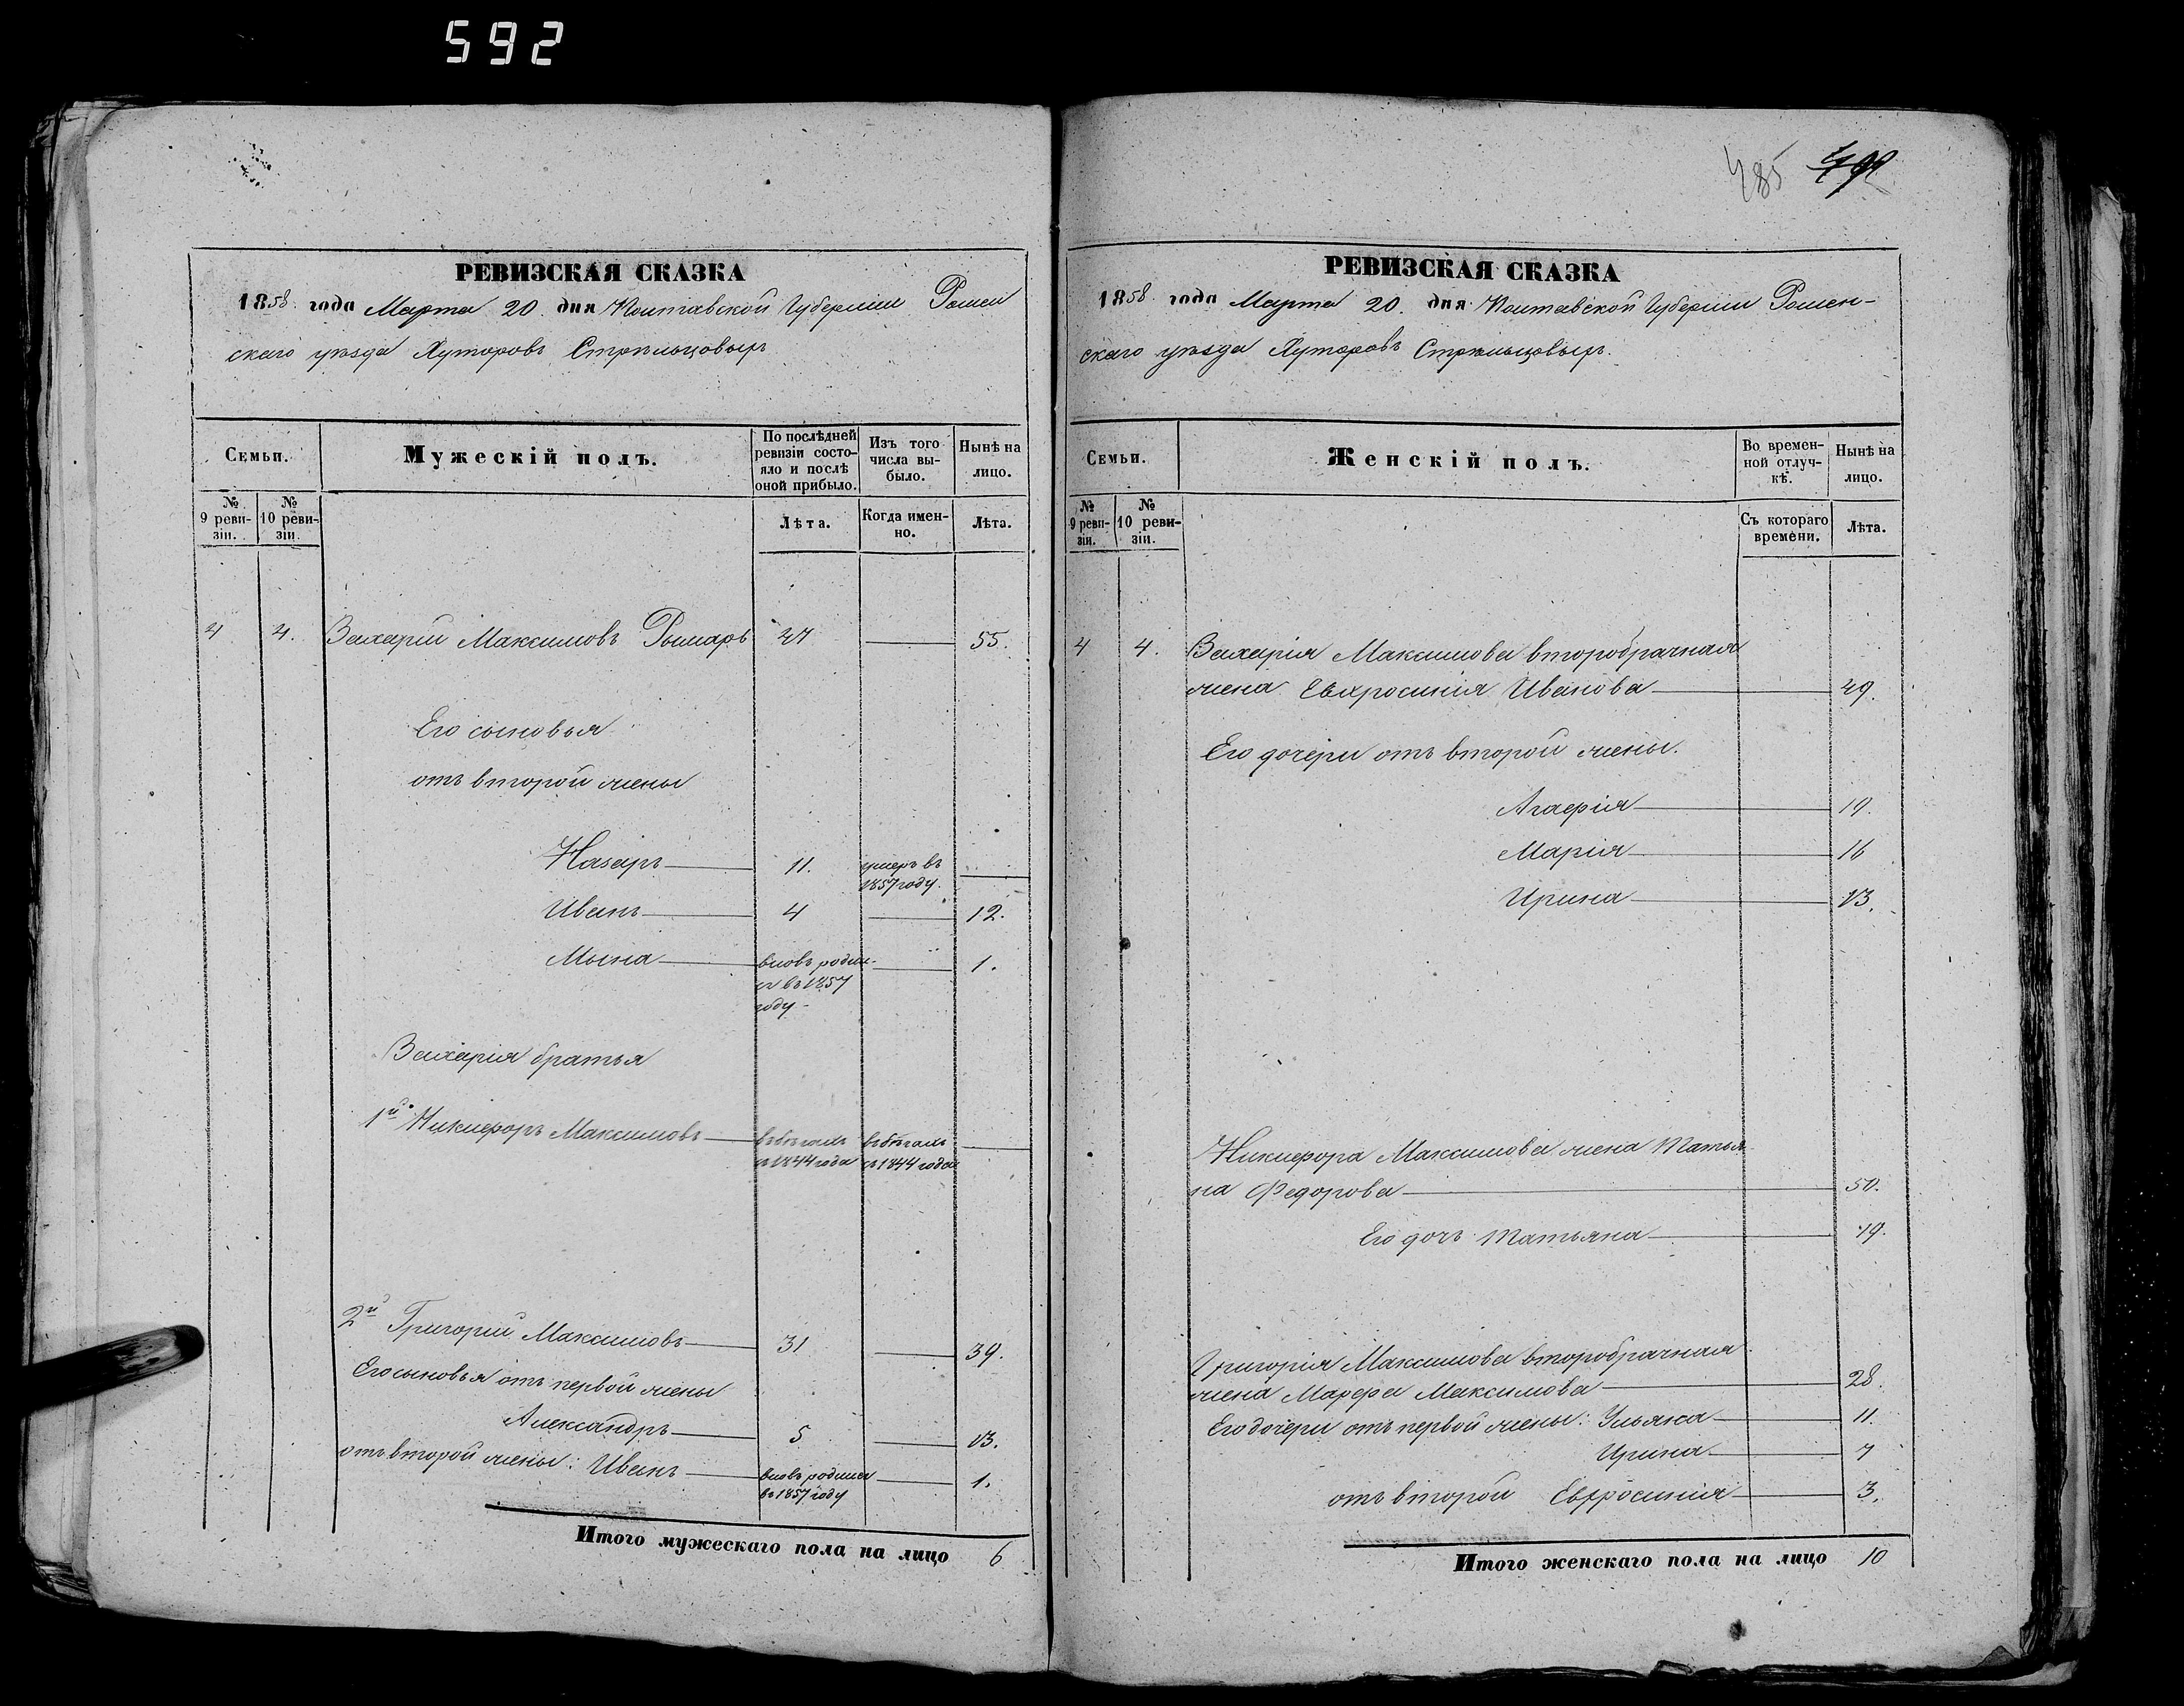 592
485 499
РЕВИЗСКАЯ СКАЗКА
1858 года Марта 20. дня Полтавской Губернии Ромен
скаго уѣзда Хуторовъ Стрѣльцовыхъ
Семьи.
Мужескій полъ.
По послѣдней
ревизіи состо-
яло и послѣ
оной прибыло.
Изъ того
числа вы-
было.
Нынѣ на
лицо.
№
9 реви-
зіи.
№
10 реви-
зіи.
Лѣта.
Когда имен-
но.
Лѣта.
4 4. Захарій Максимовъ Рымарь 47 55.
Его сыновья
отъ второй жены
Назаръ 11. умеръ въ
1857 году.
Иванъ 4 12.
Мына вновь родил- 1.
ся въ 1857
году
Захарія братья
1й Никифоръ Максимовъ въ бѣгахъ въ бѣгахъ
съ 1844 года съ 1844 года
2й Григорій Максимовъ 31 39.
Его сыновья отъ первой жены
Александръ 5 13.
отъ второй жены: Иванъ вновь родился 1.
въ 1857 году
Итого мужескаго пола на лицо 6
РЕВИЗСКАЯ СКАЗКА
1858 года Марта 20. дня Полтавской Губерніи Ромен-
скаго уѣзда Хуторовъ Стрѣльцовыхъ.
Семьи.
Женскій полъ.
Во времен-
ной отлуч-
кѣ.
Нынѣ на
лицо.
№
9 реви-
зіи.
№
10 реви-
зіи.
Съ котораго
времени.
Лѣта.
4 4. Захарія Максимова второбрачная
жена Евфросинія Иванова 49.
Его дочери отъ второй жены.
Агафія 19.
Марія 16
Ирина 13.
Никифора Максимова жена Татья-
на Федорова 50.
Его дочь Татьяна 19.
Григорія Максимова второбрачная
жена Марфа Максимова 28.
Его дочери отъ первой жены: Ульяна 11.
Ирина 7
отъ второй Евфросинія 3.
Итого женскаго пола на лицо 10